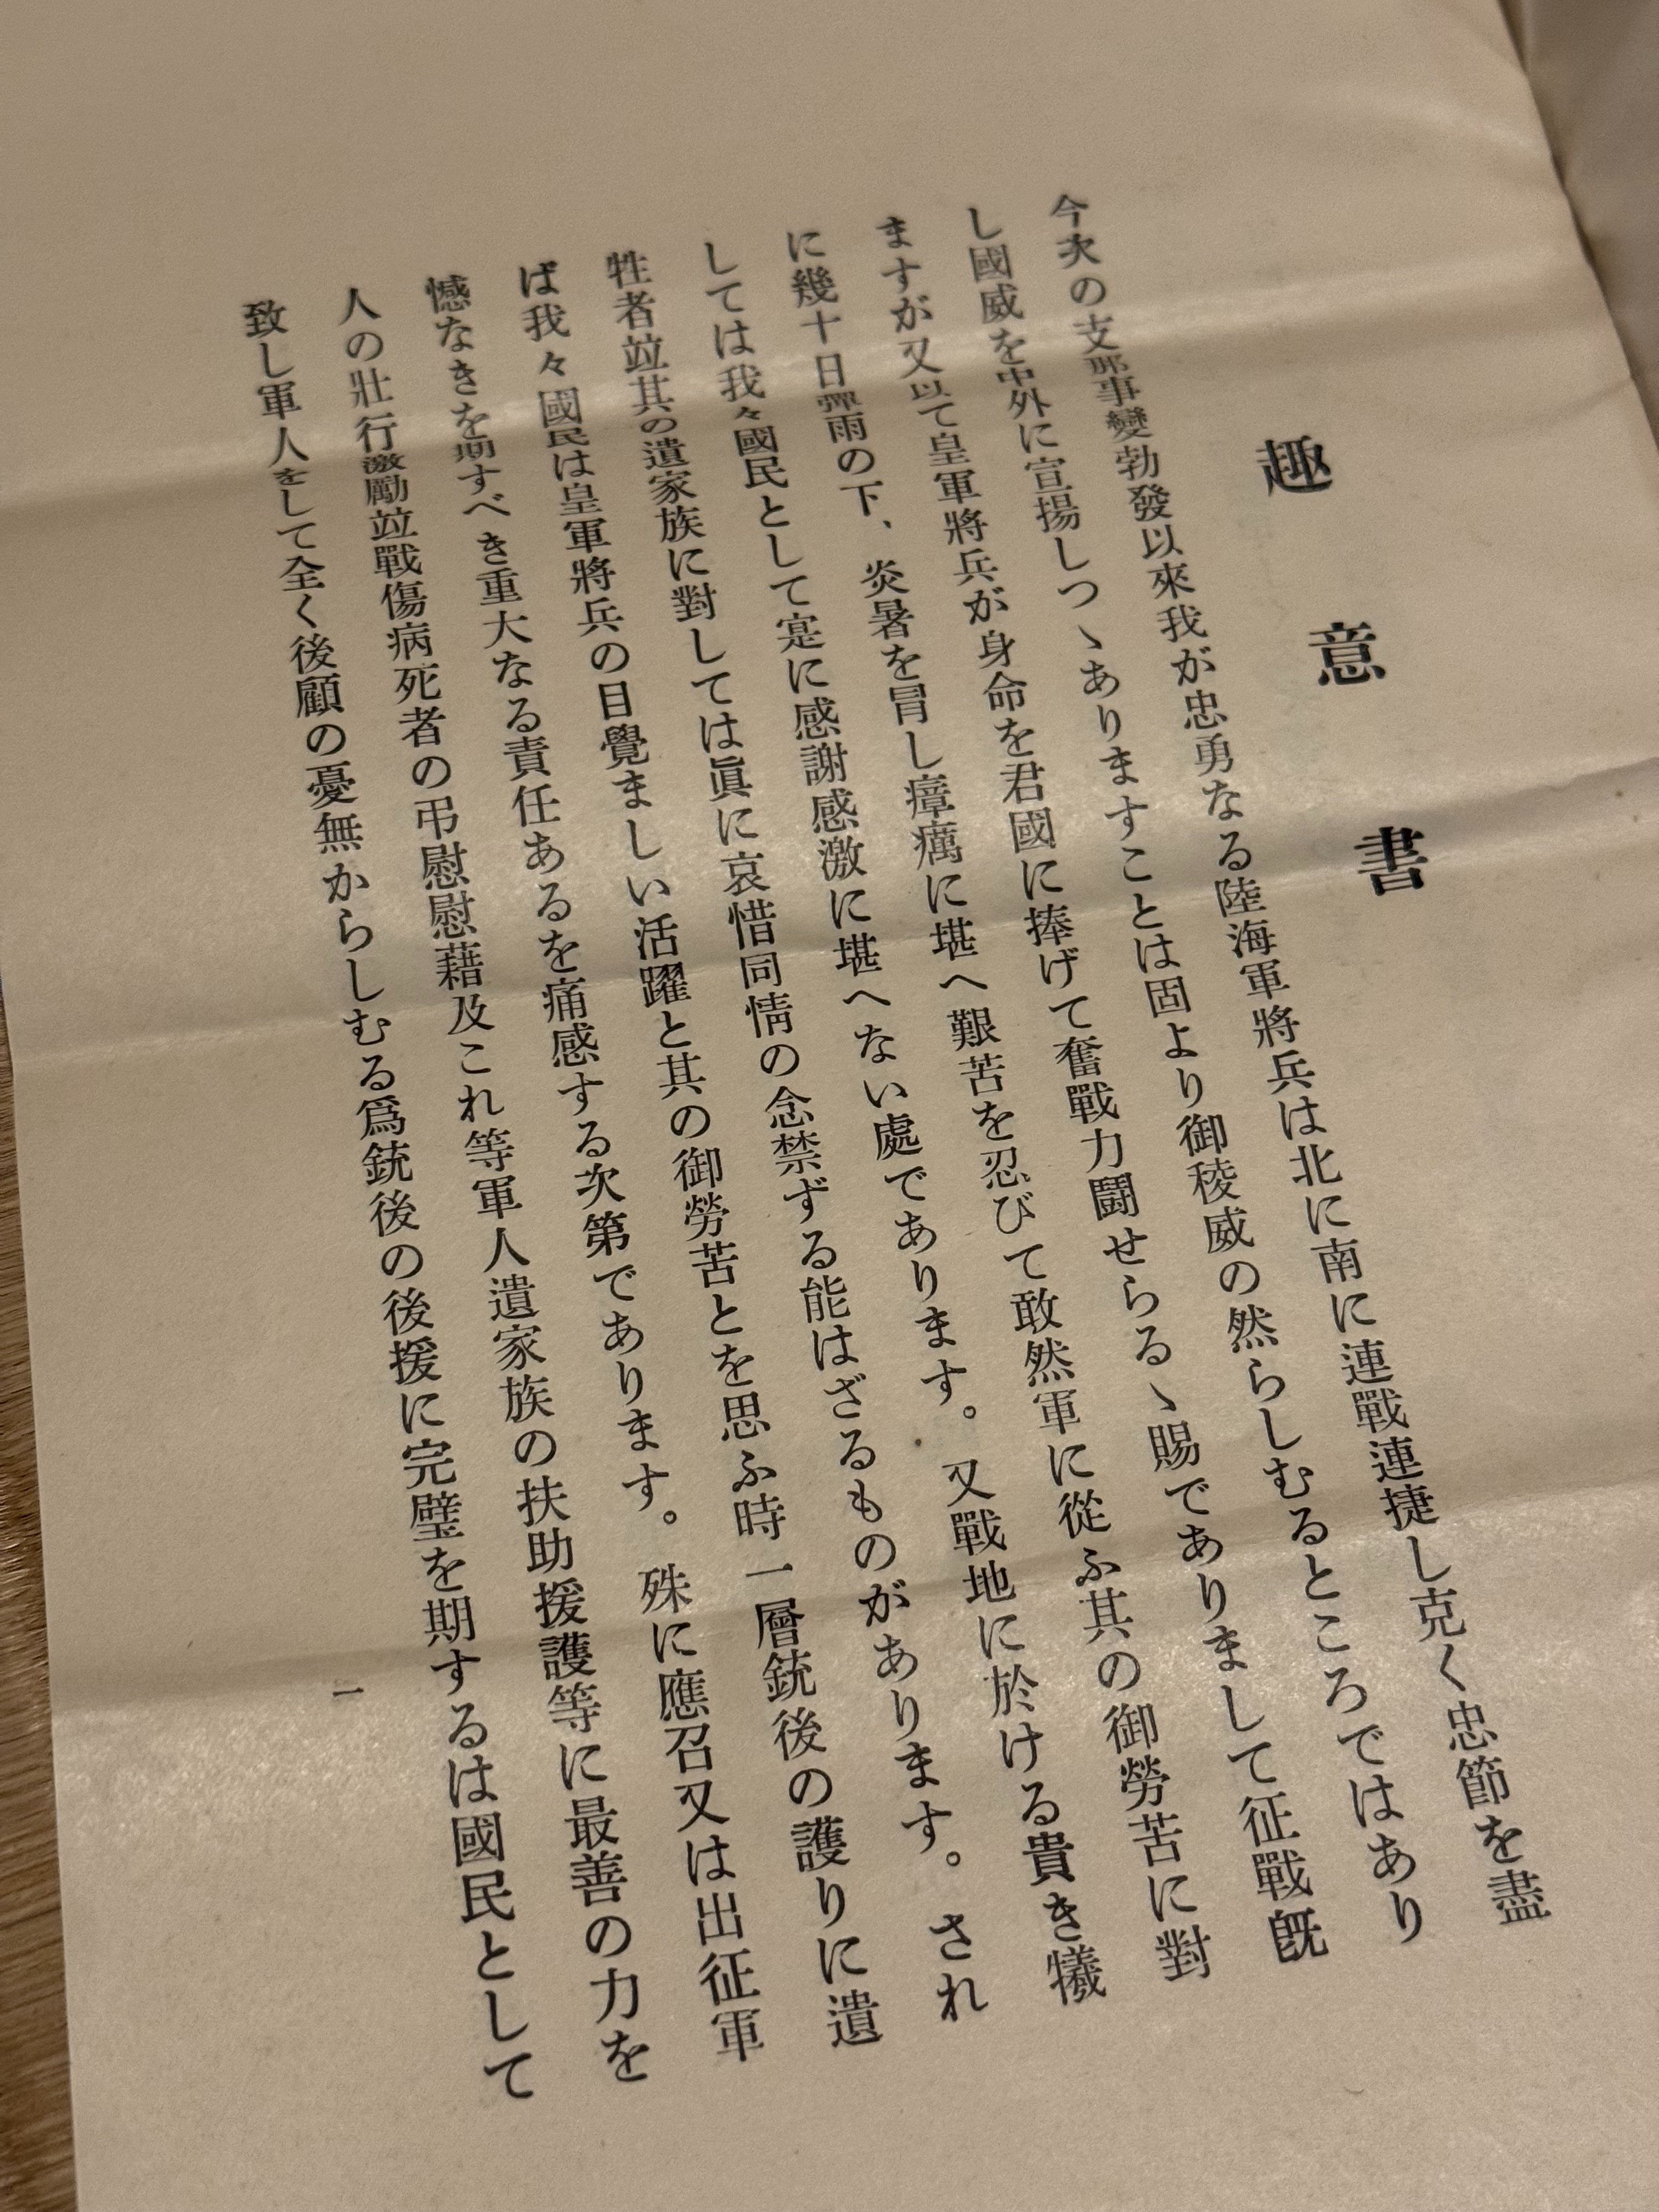 趣意書
今次の支那事變勃發以來我が忠勇なる陸海軍將兵は北に南に連戰連捷し克く忠節を盡
し國威を中外に宣揚しつヽありますことは固より御稜威の然らしむるところではあり
ますが又以て皇軍將兵が身命を君國に捧げて奮戰力鬪せらるヽ賜でありまして征戰既
に幾十日彈雨の下、炎暑を冒し瘴癘に堪へ艱苦を忍びて敢然軍に從ふ其の御勞苦に對
しては我々國民として寔に感謝感激に堪へない處であります。又戰地に於ける貴き犧
牲者竝其の遺家族に對しては眞に哀惜同情の念禁ずる能はざるものがあります。され
ば我々國民は皇軍將兵の目覺ましい活躍と其の御勞苦とを思ふ時一層銃後の護りに遺
憾なきを期すべき重大なる責任あるを痛感する次第であります。殊に應召又は出征軍
人の壯行激勵竝戰傷病死者の弔慰慰藉及これ等軍人遺家族の扶助援護等に最善の力を
致し軍人をして全く後顧の憂無からしむる爲銃後の後援に完璧を期するは國民として
一